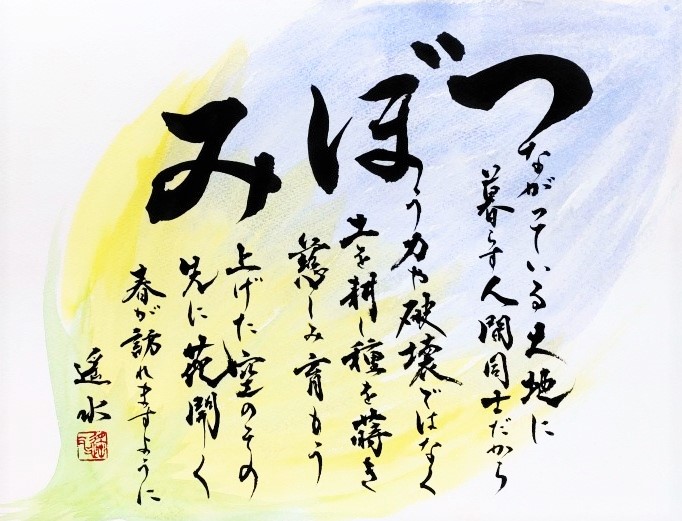 つながっている大地に
暮らす人間同士だから
ぼう力や破壊ではなく
土を耕し種を蒔き
慈しみ育もう
み上げた空のその
先に花開く
春が訪れますように
遙水